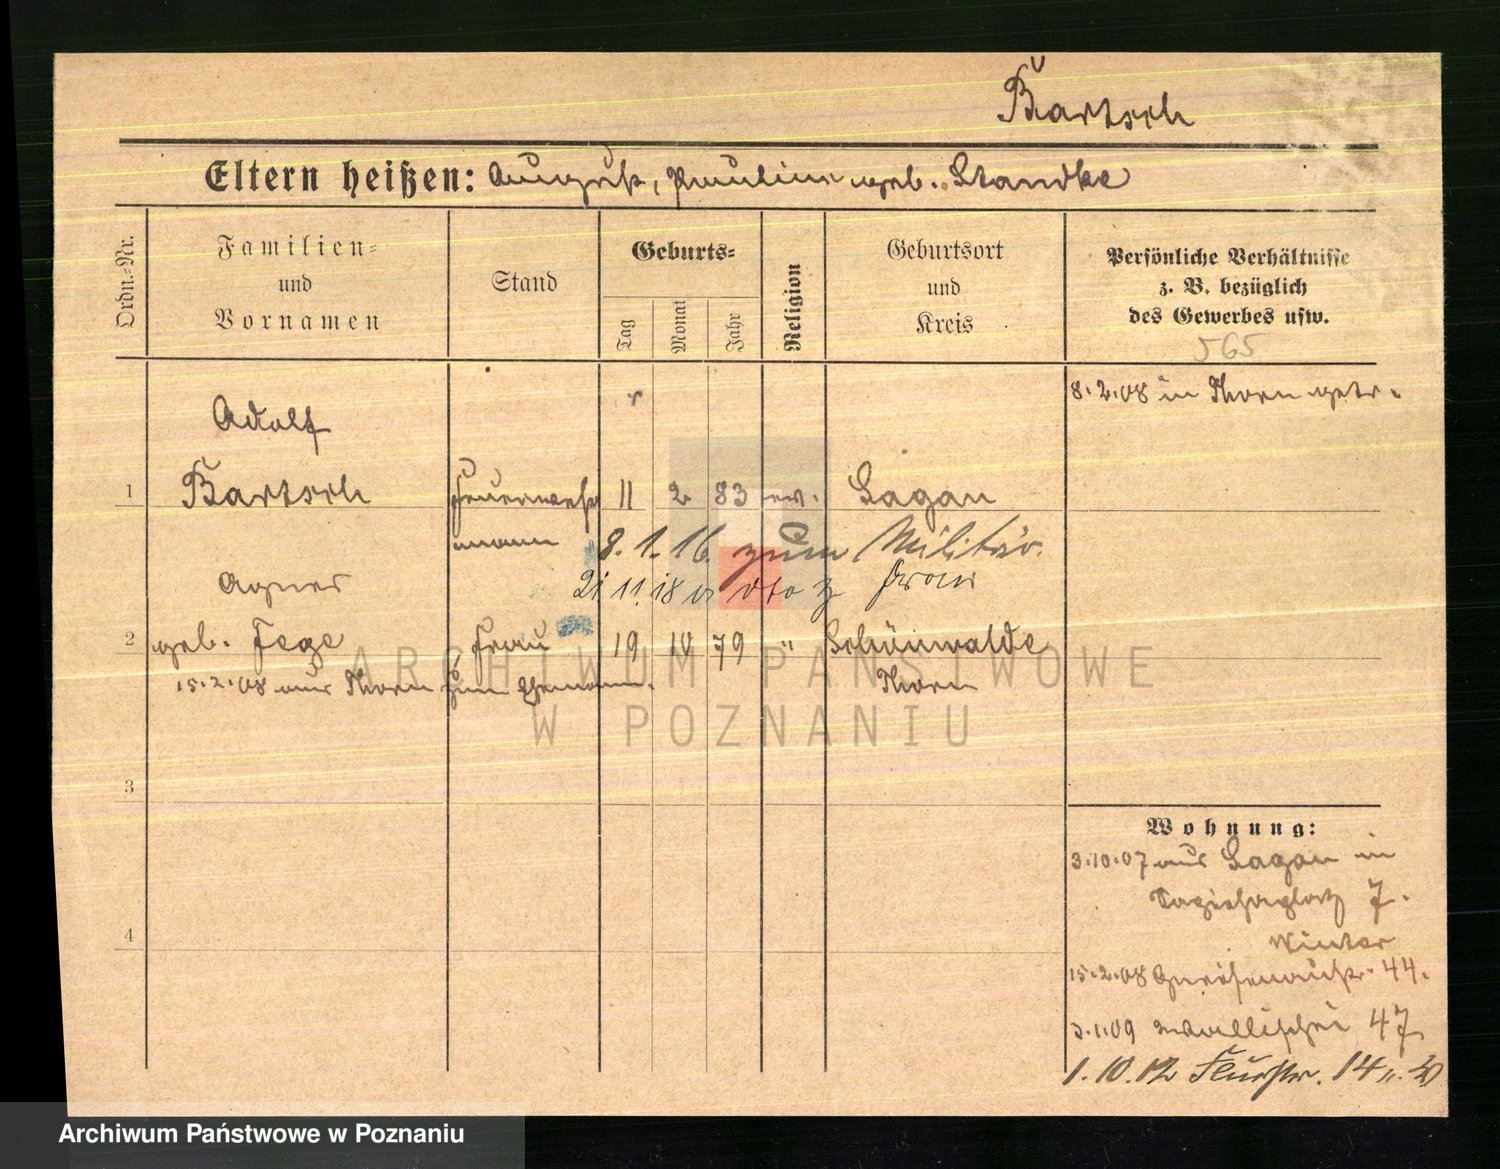 Bartsch
Eltern heißen: August, Pauline geb. Standke
Ordn.-Nr.
Familien-
und
Vornamen
Stand
Geburts-
Tag
Monat
Jahr
Religion
Geburtsort
und
Kreis
Persönliche Verhältnisse
z. B. bezüglich
des Gewerbes usw.
565
8.2.08 in Thorn getr.
Adolf
1 Bartsch Feuerwehr 11 2 83 ev. Sagan
mann 8.1.16. zum Militär.
21 11.18 dto z Frau
Agnes
2 geb. Fege Frau 19 10 79 " Schönwalde
15.2.08 aus Thorn zum Ehemann. Thorn
3
4
Wohnung:
3.10.07 aus Sagan in
Sapiehaplatz 7.
Winter
15.2.08 Gneisenaustr. 44.
3.1.09 Wallischei 47
1.10.12 Flurstr. 14
ARCHIWUM PAŃSTWOWE
W POZNANIU
Archiwum Państwowe w Poznaniu